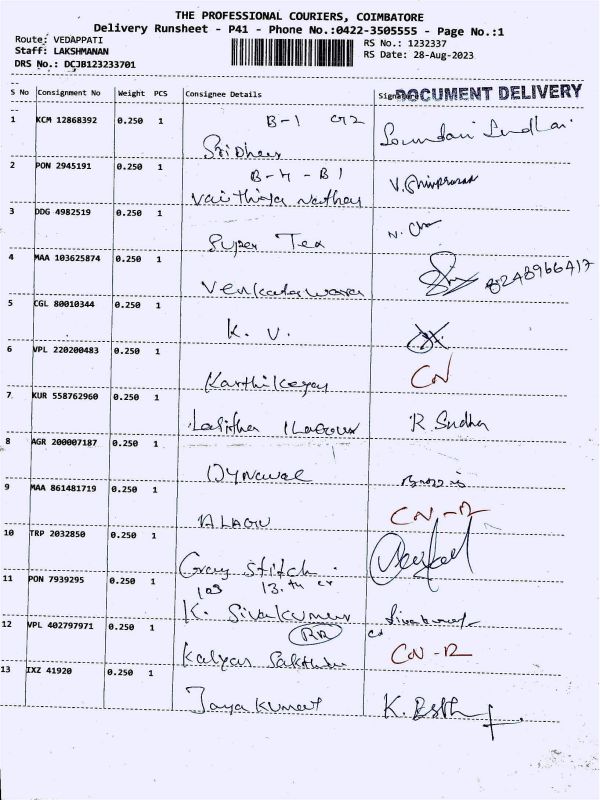 THE PROFESSIONAL COURIERS, COIMBATORE
Delivery Runsheet - P41 - Phone No.:0422-3505555 - Page No.:1
Route: VEDAPPATI
RS No.: 1232337
Staff: LAKSHMANAN
RS Date: 28-Aug-2023
DRS No.: DCJB123233701
S No Consignment No Weight PCS Consignee Details Signature DOCUMENT DELIVERY
1 KCM 12868392 0.250 1 B-1
Sridher
2 PON 2945191 0.250 1 B-4-B1
Vaithiya Nathan V.
3 DDG 4982519 0.250 1
Super Tex N.
4 MAA 103625874 0.250 1
8248966417
5 CGL 80010344 0.250 1
K. V.
6 VPL 220200483 0.250 1
Karthikeyan CN
7 KUR 558762960 0.250 1
Lalitha R. Sudha
8 AGR 200007187 0.250 1
9 MAA 861481719 0.250 1
ALAGU CN-R
10 TRP 2032850 0.250 1
Gray Stitch
11 PON 7939295 0.250 1 103 13.th
K. Sivakumar Sivakumar
12 VPL 402797971 0.250 1 RR
Kalyan Sakthi CN-R
13 IXZ 41920 0.250 1
Jayakumar K.